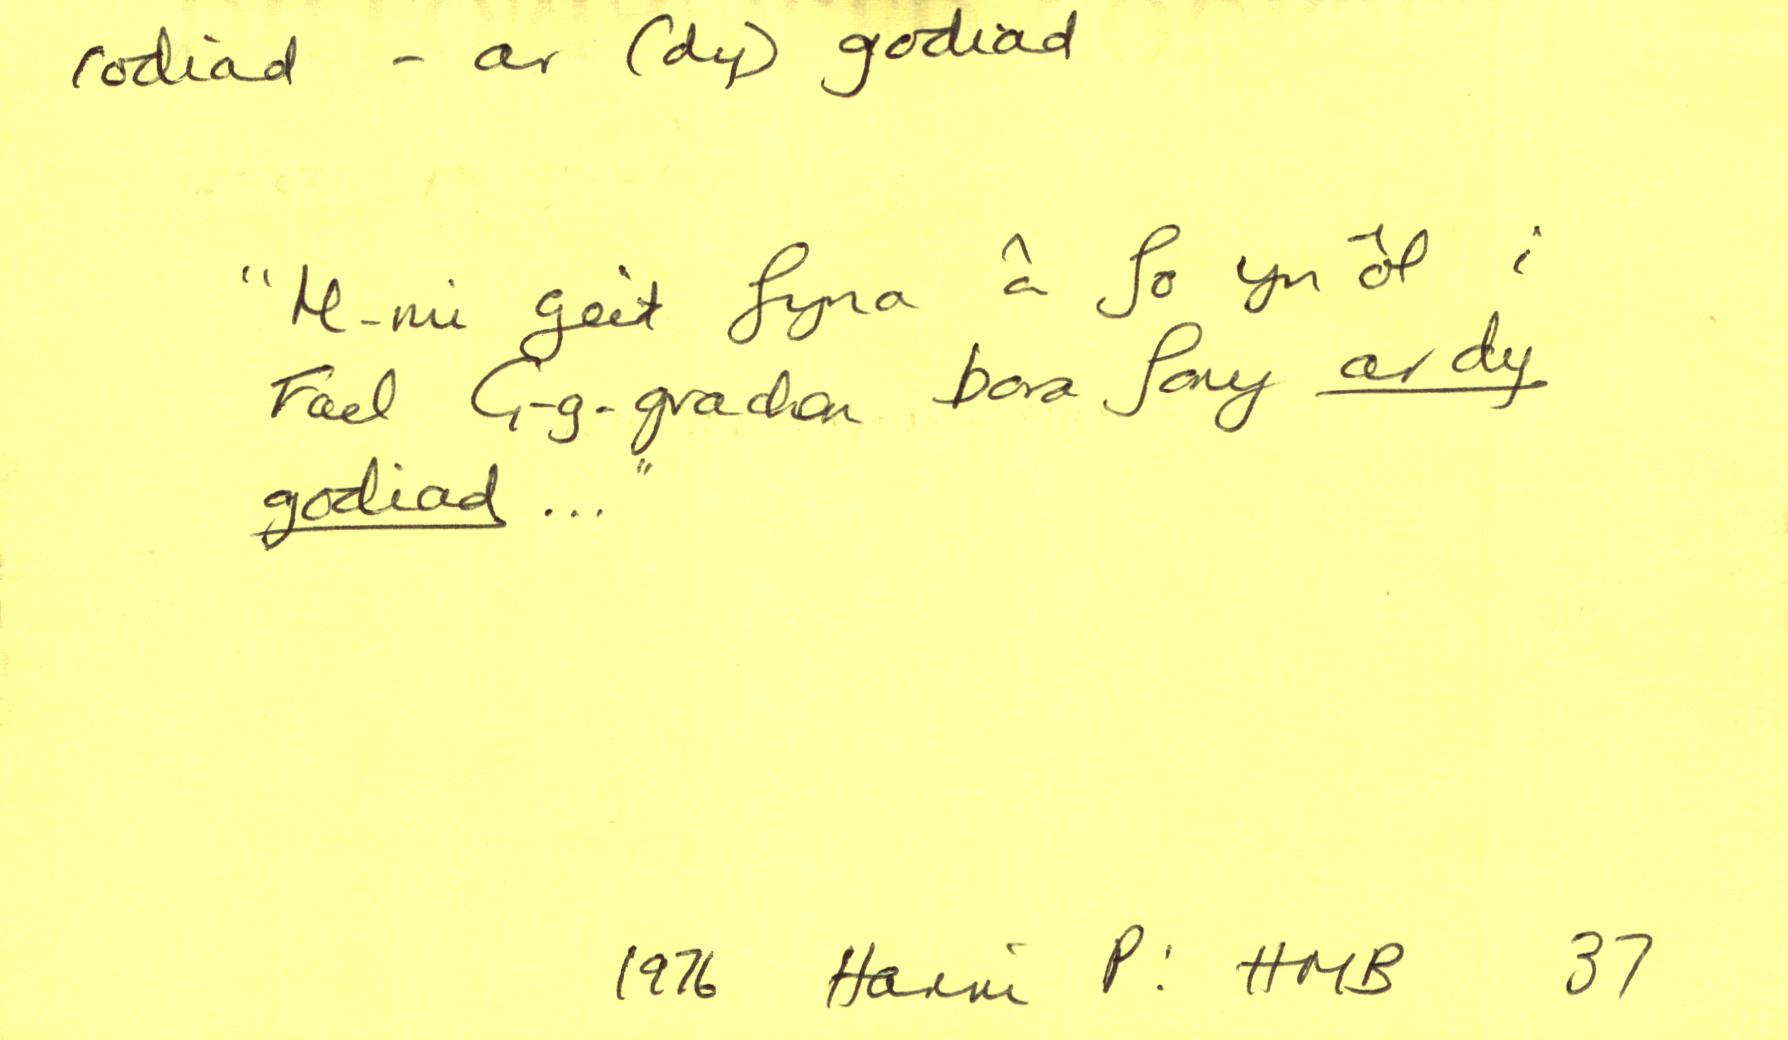 codiad - ar (dy) godiad
"M-mi geit fyna â fo yn ôl i
Foel G-g-grachan bora fory ar dy
godiad ..."
1976 Harri P: HMB 37